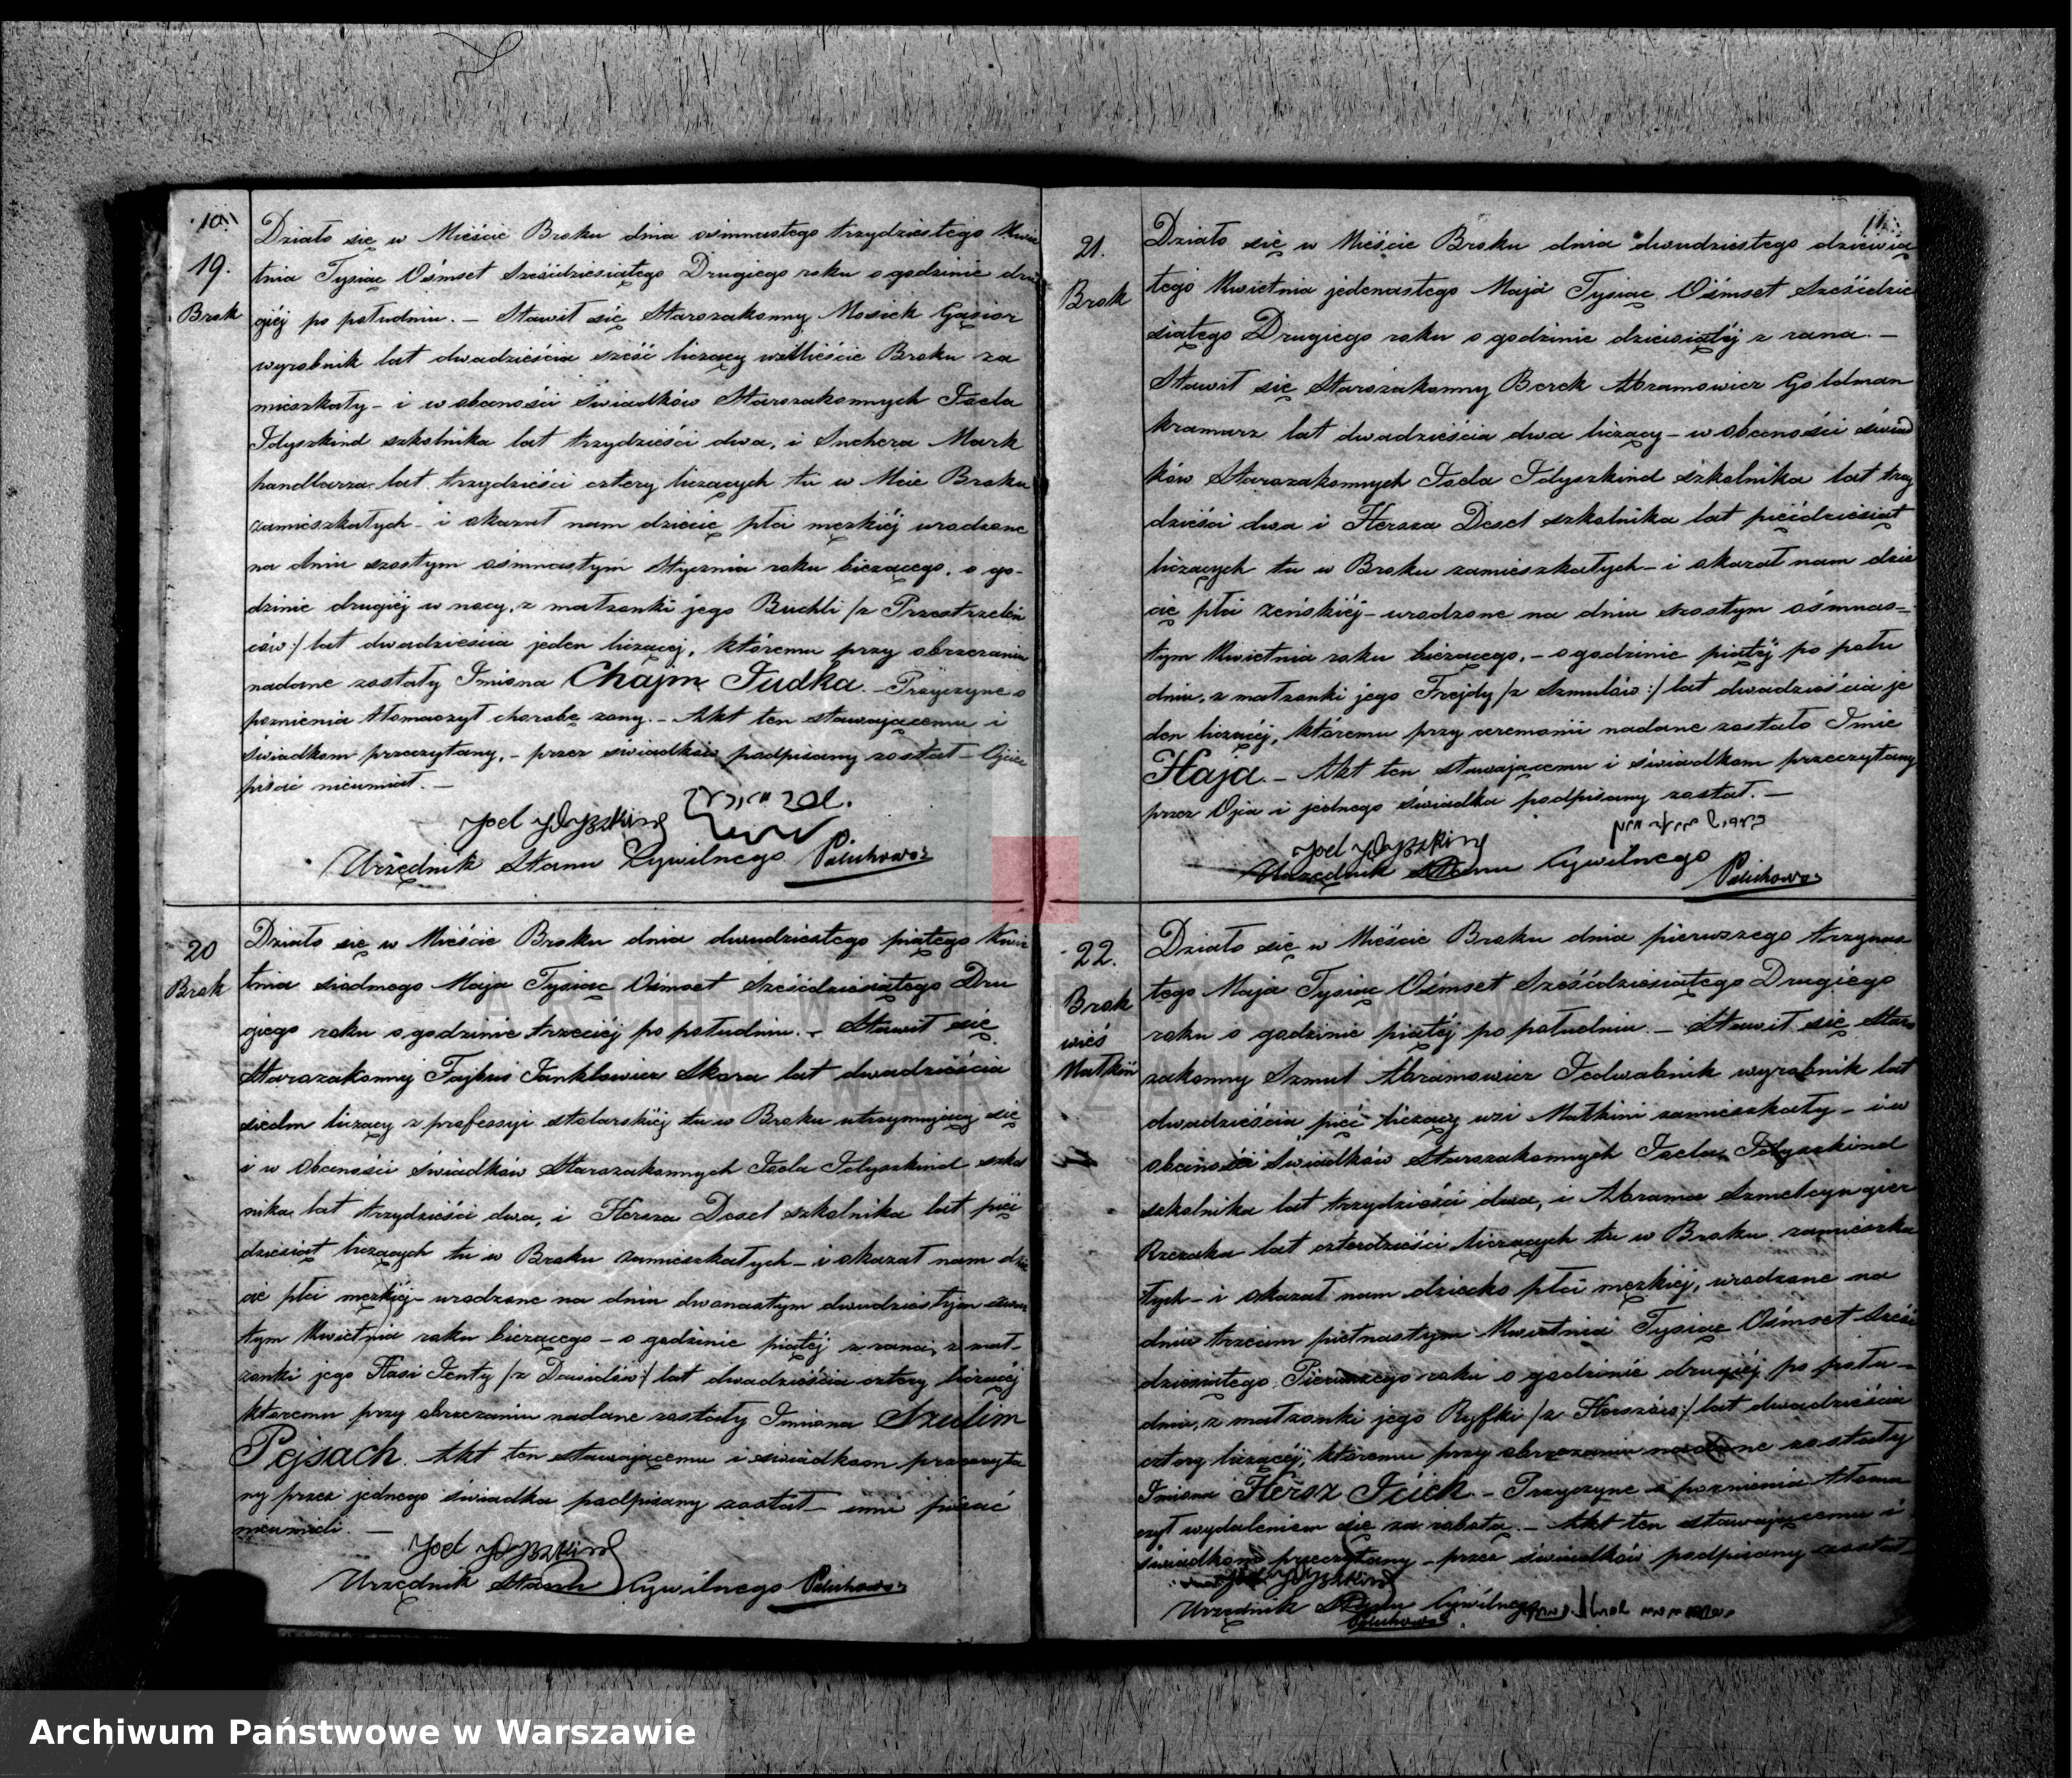 10.
19.
Brok
Działo się w Mieście Broku dnia osimnastego trzydziestego Kwie
tnia Tysiąc Ośmset Sześćdziesiątego Drugiego roku o godzinie dru
giéj po południu. – Stawił się Starozakonny Mosiek Gąsior
wyrobnik lat dwadzieścia sześć liczący w Mieście Broku za
mieszkały – i w obecności Świadków Starozakonnych Joela
Idyszkind szkolnika lat trzydzieści dwa, i Suchera Mark
handlarza lat trzydzieści cztery liczących tu w Mcie Broku
zamieszkałych – i okazał nam dziecię płci męzkiéj urodzone
na dniu szostym ośmnastym Stycznia roku bieżącego, o go-
dzinie drugiéj w nocy, z małżonki jego Buchli /z Przestrzeleń
ców:/ lat dwadzieścia jeden liczącéj, któremu przy obrzezaniu
nadane zostały Imiona Chajm Judka. – Przyczynę o
poznienia tłomaczył chorobę żony. – Akt ten stawającemu i
świadkom przeczytany, – przez świadków podpisany został – Ojciec
pisać nieumiał. –
Joel Idyszkind
Urzędnik Stanu Cywilnego
20
Brok
Działo się w Mieście Broku dnia dwudziestego piątego Kwie
tnia siódmego Maja Tysiąc Ośmset Sześćdziesiątego Dru
giego roku o godzinie trzeciéj po południu. – Stawił się
Starozakonny Fajbus Janklowicz Skora lat dwadzieścia
siedm liczący z professyi stolarskiéj tu w Broku utrzymujący się
i w obecności Świadków Starozakonnych Joela Idyszkind szkol
nika lat trzydzieści dwa, i Hersza Desel szkolnika lat pięć
dziesiąt liczących tu w Broku zamieszkałych – i okazał nam dzie
cię płci męzkiéj – urodzone na dniu dwonastym dwudziestym czwar
tym Kwietnia roku bieżącego – o godzinie piątéj z rana, z mał-
żonki jego Hasi Jenty /z Dawidów:/ lat dwadzieścia cztery liczącéj
któremu przy obrzezaniu nadane zostały Imiona Szulim
Pejsach. Akt ten stawającemu i świadkom przeczyta
ny przez jednego świadka podpisany został – inni pisać
nieumieli. –
Joel Idyszkind
Urzędnik Stanu Cywilnego
11.
21.
Brok
Działo się w Mieście Broku dnia dwudziestego dziewią
tego Kwietnia jedenastego Maja Tysiąc Ośmset Sześćdzie
siątego Drugiego roku o godzinie dziesiątéj z rana. –
Stawił się Starozakonny Berek Abramowicz Goldman
kramarz lat dwadzieścia dwa liczący – w obecności świad
ków Starozakonnych Joela Idyszkind szkolnika lat trzy
dzieści dwa i Hersza Desel szkolnika lat pięćdziesiąt
liczących tu w Broku zamieszkałych – i okazał nam dzie
cię płci żeńskiéj – urodzone na dniu szostym ośmnas-
tym Kwietnia roku bieżącego, – o godzinie piątéj po połu
dniu, z małżonki jego Frejdy /z Szmulów:/ lat dwadzieścia je
den liczącéj, któremu przy ceremonii nadane zostało Imie
Haja. – Akt ten stawającemu i świadkom przeczytany
przez Ojca i jednego świadka podpisany został. –
Joel Idyszkind
Urzędnik Stanu Cywilnego
22.
Brok
wieś
Małkiń
Działo się w Mieście Broku dnia pierwszego trzynas
tego Maja Tysiąc Ośmset Sześćdziesiątego Drugiego
roku o godzinie piątéj po południu. – Stawił się Staro
zakonny Szmul Abramowicz Jedwabnik wyrobnik lat
dwadzieścia pięć liczący wsi Małkini zamieszkały – i w
obecności Świadków Starozakonnych Joela Idyszkind
szkolnika lat trzydzieści dwa, i Abrama Szmelcyngier
Rzezaka lat czterdzieści liczących tu w Broku zamieszka
łych – i okazał nam dziecko płci męzkiéj, urodzone na
dniu trzecim piętnastym Kwietnia Tysiąc Ośmset Sześć
dziesiątego Pierwszego roku o godzinie drugiéj po połu-
dniu, z małżonki jego Ryfki /z Herszów:/ lat dwadzieścia
cztery liczącéj, któremu przy obrzezaniu nadane zostały
Imiona Hersz Icick – Przyczynę o poznienia tłoma
czył wydaleniem się za robotą. – Akt ten stawającemu i
świadkom przeczytany – przez świadków podpisany został
Joel Idyszkind
Urzędnik Stanu Cywilnego
ARCHIWUM PAŃSTWOWE
W WARSZAWIE
Archiwum Państwowe w Warszawie